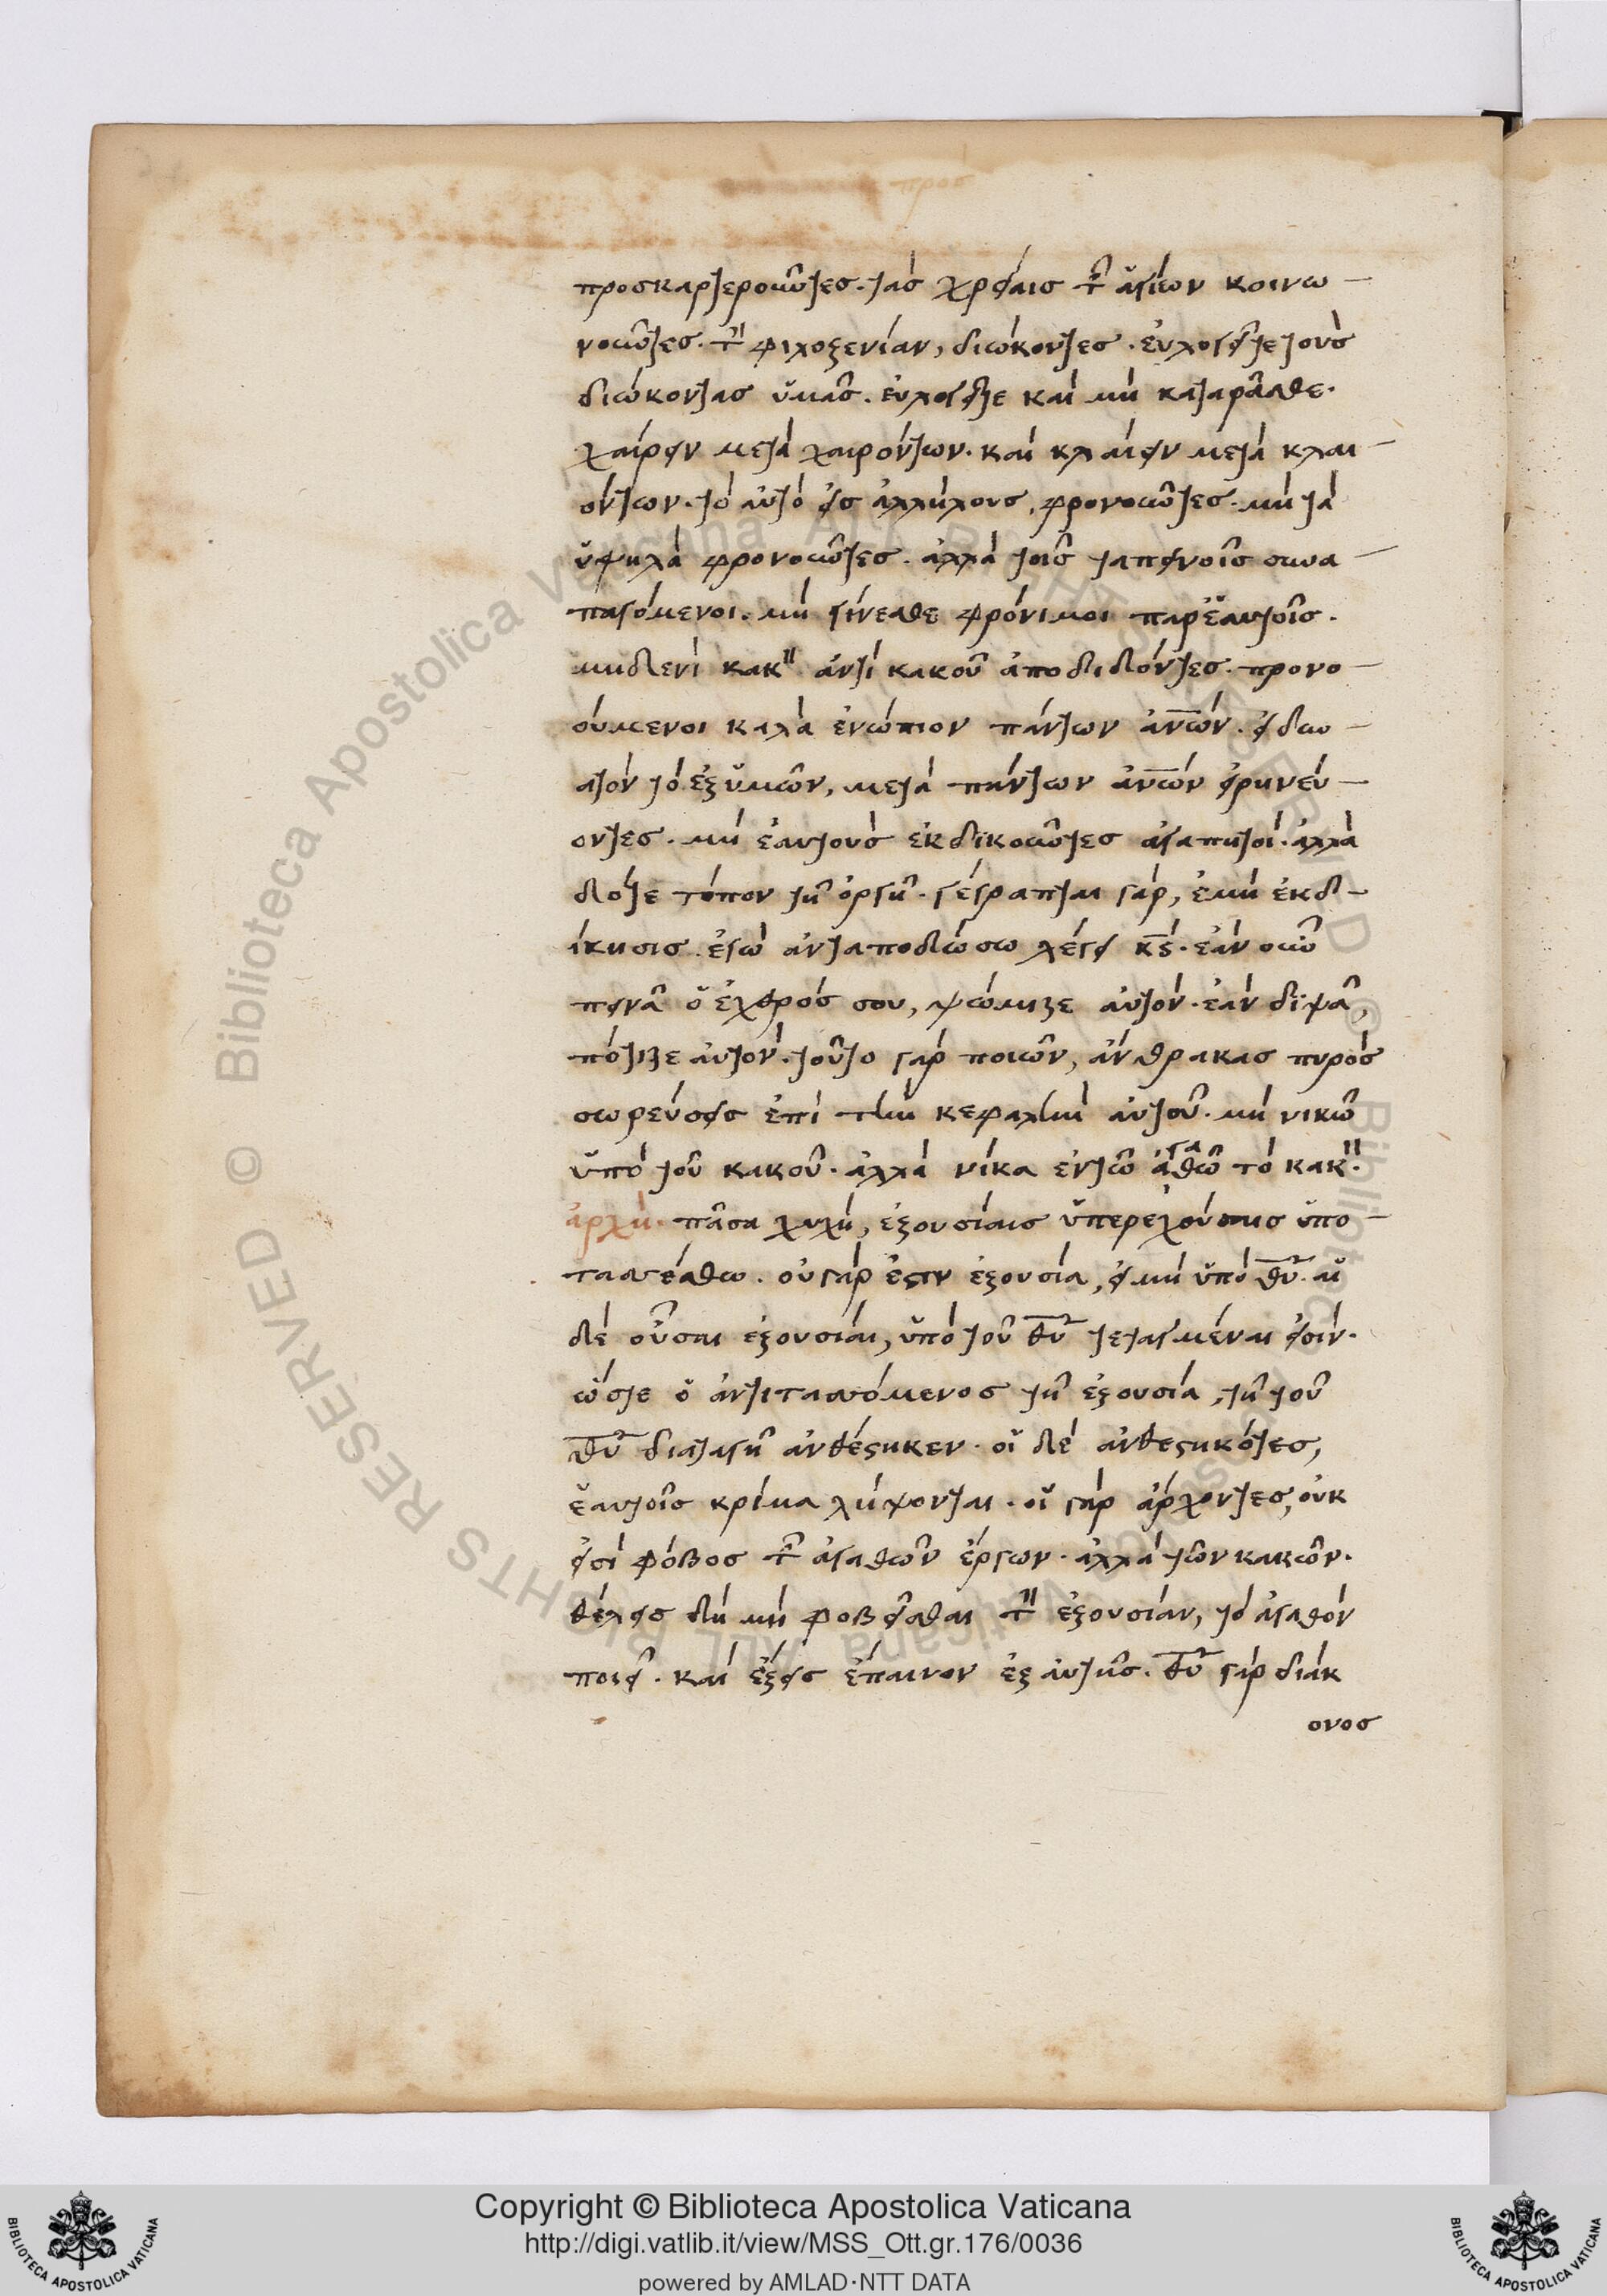 προσκαρτεροῦντες. ταῖσ χρείαις τῶν ἁγίων κοινω –
νοῦντες. τὴν φιλοξενίαν, διώκοντες. ἐυλογεῖτε τοὺσ
διώκοντας ὑμᾶσ. ἐυλογεῖτε καὶ μὴ καταρᾶσθε.
χαίρειν μετὰ χαιρόντων. καὶ κλαίειν μετὰ κλαι –
όντων. τὸ ἀυτὸ εἰσ ἀλλήλους, φρονοῦντες. μὴ τὰ
ὑψηλὰ φρονοῦντες. ἀλλὰ τοῖσ ταπεινοῖσ συνα –
παγόμενοι. μὴ γίνεσθε φρόνιμοι παρἑαυτοῖσ.
μηδενὶ κακὸν ἀντὶ κακοῦ ἀποδιδόντες. προνο –
ούμενοι καλὰ ἐνώπιον πάντων ἀν̅ων. εἰ δυν –
ατὸν τὸ ἐξὑμῶν, μετὰ πάντων ἀν̅ων εἰρηνεύ –
οντες. μὴ ἑαυτοὺσ ἐκδικοῦντες ἀγαπητοί. ἀλλὰ
δότε τόπον τῆ ὀργῆ. γέγραπται γὰρ, ἐμὴ ἐκδ –
ίκησις. ἐγὼ ἀνταποδώσω λέγει κ̅ς. ἐὰν οὖν
πεινᾶ ὁ ἐχθρόσ σου, ψώμιζε ἀυτόν. ἐὰν διψᾶ,
πότιζε ἀυτόν. τοῦτο γὰρ ποιῶν, ἄνθρακας πυρὸσ
σωρεύσεις ἐπὶ τὴν κεφαλὴν ἀυτοῦ. μὴ νικῶ
ὑπὸ τοῦ κακοῦ. ἀλλὰ νίκα ἐντῶ ἀγαθῶ τὸ κακὸν.
ἀρχὴ. πᾶσα ψυχὴ, ἐξουσίαις ὑπερεχούσαις ὑπο –
τασσέσθω. οὐ γὰρ ἔστιν ἐξουσία, εἰ μὴ ὑπὸ θ̅υ. αἱ
δὲ οὖσαι ἐξουσίαι, ὑπὸ τοῦ θ̅υ τεταγμέναι εἰσίν.
ὥστε ὁ ἀντιτασσόμενος τῆ ἐξουσία, τῆ τοῦ
θ̅υ διαταγῆ ἀνθέστηκεν. οἱ δὲ ἀνθεστηκότες,
ἑαυτοῖσ κρίμα λήψονται. οἱ γὰρ ἄρχοντες, οὐκ
εἰσὶ φόβος τῶν ἀγαθῶν ἔργων. ἀλλὰ τῶν κακῶν.
θέλεις δὴ μὴ φοβεῖσθαι τὴν ἐξουσίαν, τὸ ἀγαθὸν
ποιεῖ. καὶ ἕξεις ἔπαινον ἐξ ἀυτῆσ. θ̅υ γὰρ διάκ
ονος
Copyright © Biblioteca Apostolica Vaticana
http://digi.vatlib.it/view/MSS_Ott.gr.176/0036
powered by AMLAD·NTT DATA
BIBLIOTECA APOSTOLICA VATICANA
BIBLIOTECA APOSTOLICA VATICANA
© Biblioteca Apostolica Vaticana ALL RIGHTS RESERVED